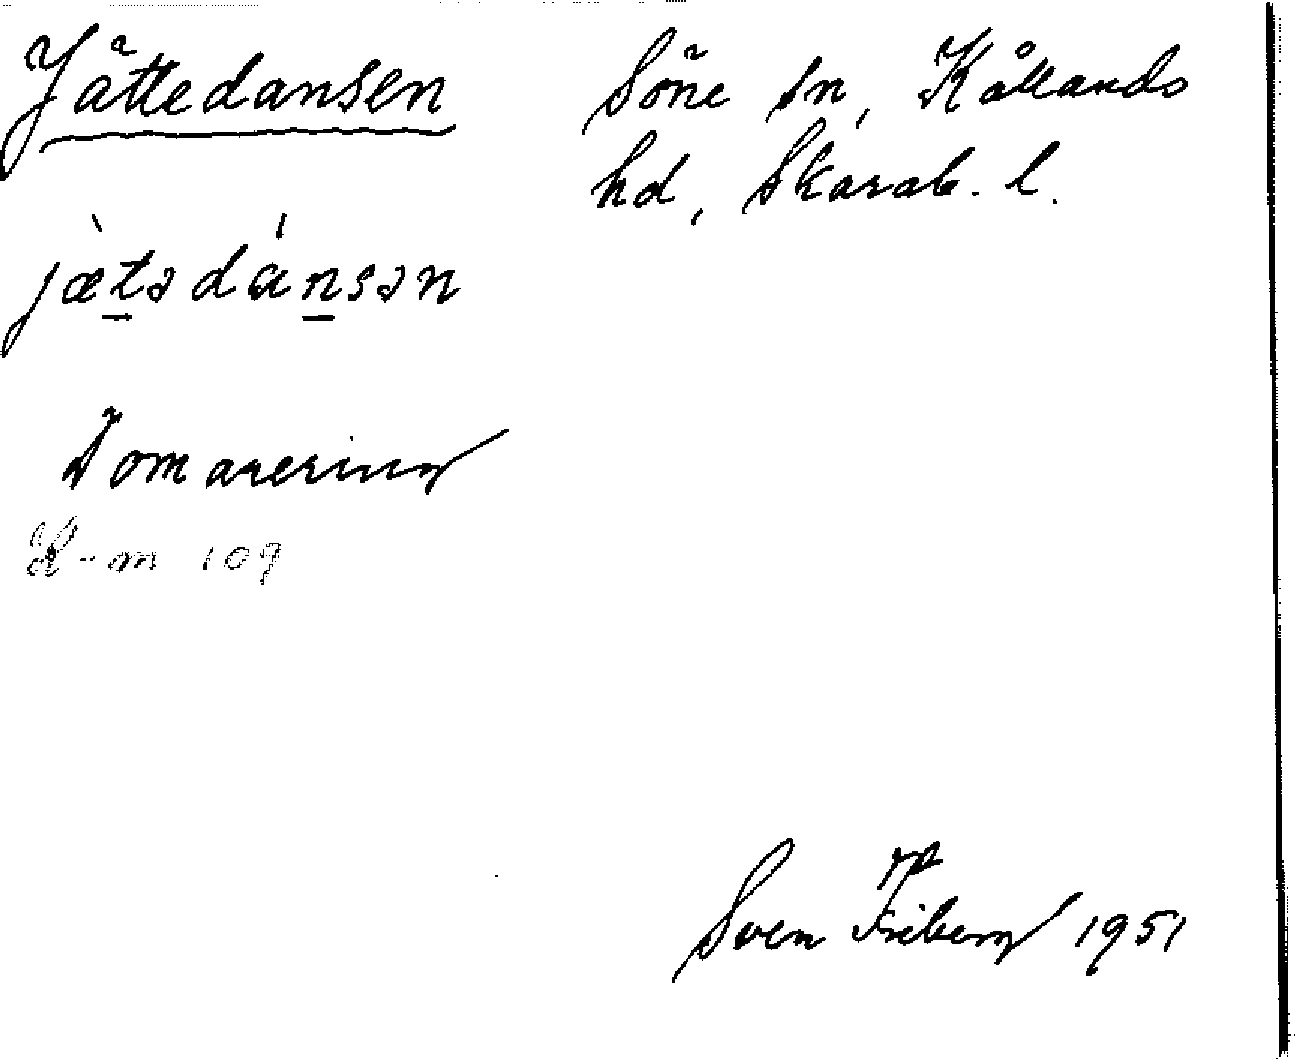 Jättedansen
Söne sn, Kållands
hd, Skarab. l.
jæ̀tədánsən
Domarering
Ek-m 109
Sven Friberg 1951